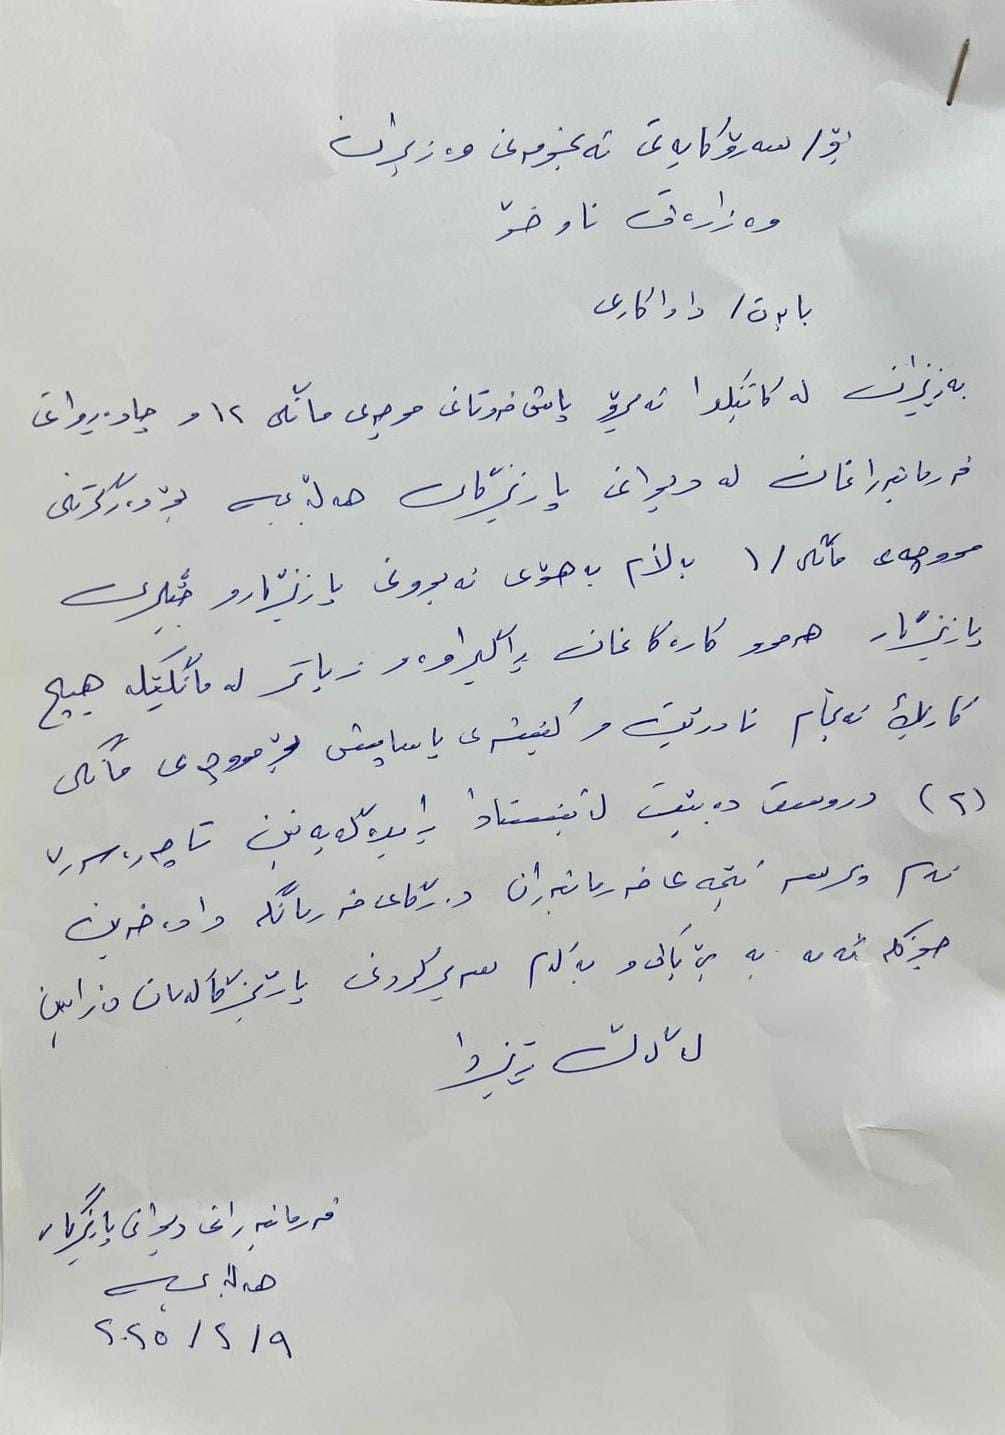 بۆ/ سەرۆکایەتی ئەنجومەنی وەزیران
وەزارەتی ناوخۆ
بابەت/ داواکاری
بەڕێزان لە کاتێکدا ئەمڕۆ پاش فەوتانی موچەی مانگی ١٢ و چاوەڕوانی
فەرمانبەرانمان لە دیوانی پارێزگای هەڵەبجە بۆ وەرگرتنی
مووچەی مانگی /١ بەڵام بەهۆی نەبوونی پارێزگار و جێگری
پارێزگار هەموو کارەکانمان ڕاگیراوە و زیاتر لە مانگێکە هیچ
کارێک ئەنجام نادرێت و کێشەی یاسایش بۆ مووچەی مانگی
(٢) دروست دەبێت لێستادا ڕایدەگەیەنین تا چارەسەری
ئەم پرسە ئێمەی فەرمانبەران دەرگای فەرمانگە دادەخەین
جۆرێکە ئەمە بە بێ و بەڵام سەیرکردنی پارێزگاکەمان دەزانین
لەگەڵ ڕێزدا
فەرمانبەرانی دیوانی پارێزگای
هەڵەبجە
٢٠٢٥/٢/٩